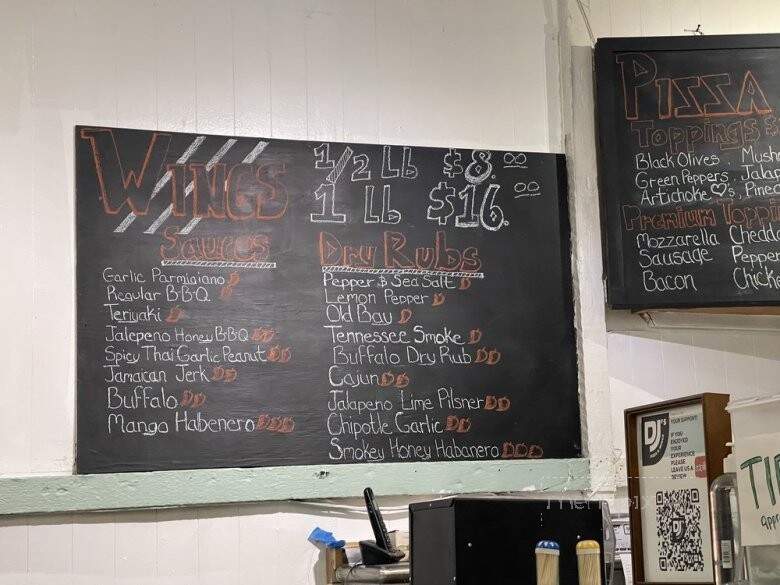 WINGS
1/2 Lb $8.00
1 Lb $16.00
Sauces
Garlic Parmigiano
Regular B·B·Q
Teriyaki
Jalepeno Honey B·B·Q
Spicy Thai Garlic Peanut
Jamaican Jerk
Buffalo
Mango Habenero
Dry Rubs
Pepper & Sea Salt
Lemon Pepper
Old Bay
Tennessee Smoke
Buffalo Dry Rub
Cajun
Jalapeno Lime Pilsner
Chipotle Garlic
Smokey Honey Habanero
PIZZA
Toppings
Black Olives . Mush
Green Peppers . Jalap
Artichoke ♡'s, Pine
Premium Topp
Mozzarella Chedda
Sausage Pepper
Bacon Chick
DJ's
YOUR SUPPORT!
IF YOU
ENJOYED
YOUR
EXPERIENCE
PLEASE
LEAVE US A
REVIEW
DJ's
TIP
appr